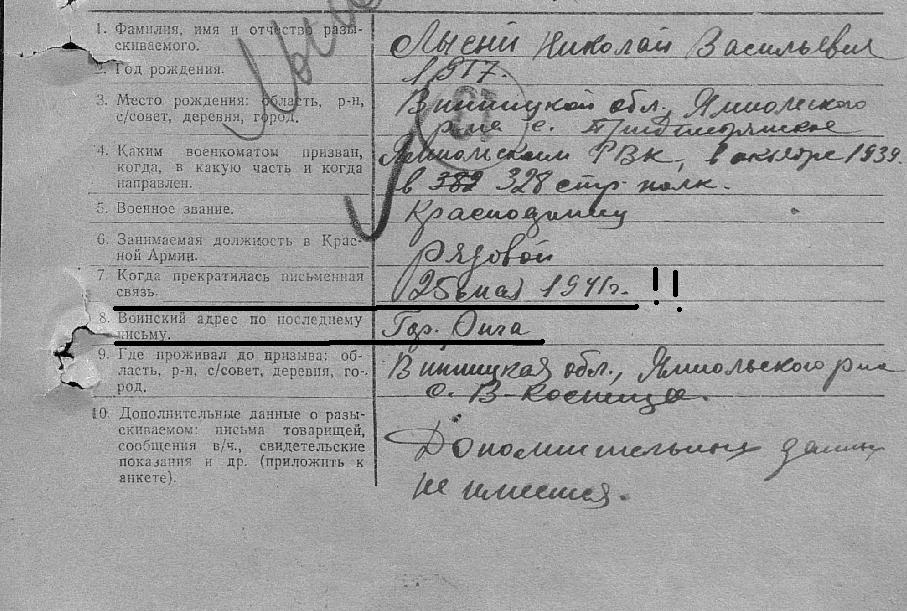 1. Фамилия, имя и отчество разы-
скиваемого.
Лысий Николай Васильевич
2. Год рождения.
1917.
3. Место рождения: область, р-н,
с/совет, деревня, город.
Винницкой обл., Ямпольского
р-на с.
4. Каким военкоматом призван,
когда, в какую часть и когда
направлен.
Ямпольским РВК, в октябре 1939.
в 328 стр. полк.
5. Военное звание.
Красноармеец
6. Занимаемая должность в Крас-
ной Армии.
Рядовой
7. Когда прекратилась письменная
связь.
25 мая 1941 г. !!
8. Воинский адрес по последнему
письму.
Гор. Рига
9. Где проживал до призыва: об-
ласть, р-н, с/совет, деревня, го-
род.
Винницкая обл., Ямпольского р-на
с. В-Косница.
10. Дополнительные данные о разы-
скиваемом: письма товарищей,
сообщения в/ч., свидетельские
показания и др. (приложить к
анкете).
Дополнительных данных
не имеется.